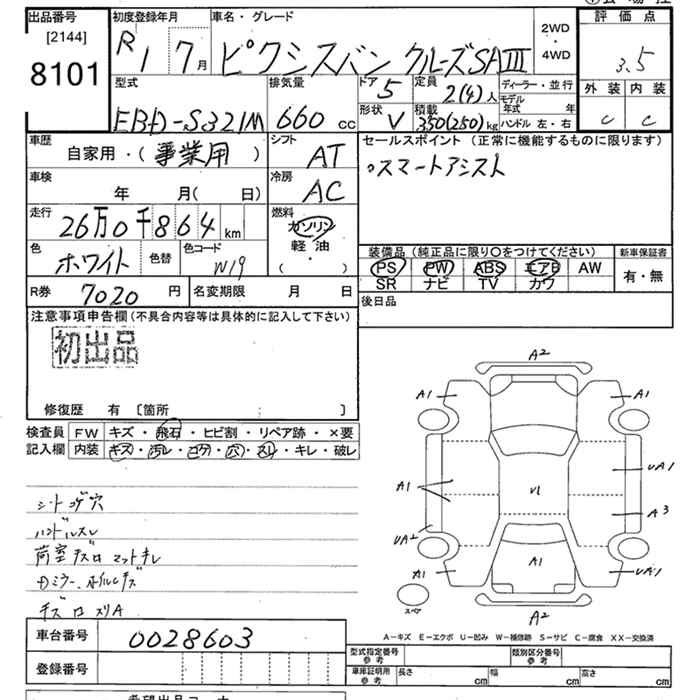 出品番号
[2144]
8101
初度登録年月
R1 7月
車名・グレード
ピクシスバン クルーズSAⅢ
2WD
・
4WD
評価点
3.5
外装 内装
C C
型式
EBD-S321M
排気量
660 cc
ドア
5
定員
2(4)人
形状
V
積載
350(250)kg
ディーラー・並行
モデル年式 年
ハンドル 左・右
車歴
自家用・(事業用)
シフト
AT
車検
年 月( 日)
冷房
AC
走行
26万0千864km
燃料
ガソリン
軽油
( ・ )
色
ホワイト
色替
色コード
W19
R券 7020円
名変期限 月 日
セールスポイント (正常に機能するものに限ります)
○スマートアシスト
装備品(純正品に限り○をつけてください)
PS PW ABS エアB AW
SR ナビ TV カワ
新車保証書
有・無
後日品
注意事項申告欄(不具合内容等は具体的に記入して下さい)
初出品
修復歴 有 〔箇所 〕
検査員記入欄
FW キズ・飛石・ヒビ割・リペア跡・×要
内装 キズ・汚レ・コゲ・穴・スレ・キレ・破レ
シートコゲ穴
ハンドルスレ
荷室キズロ マットキレ
Dミラー、ホイルキズ
キズロ スリA
車台番号 0028603
登録番号
A2
A1
A1
A1
UA1
U1
A3
UA2
A1
A1
UA1
スペア
A2
A―キズ E―エクボ U―凹み W―補修跡 S―サビ C―腐食 XX―交換済
型式指定番号 参考
類別区分番号 参考
車庫証明用 参考
長さ cm
幅 cm
高さ cm